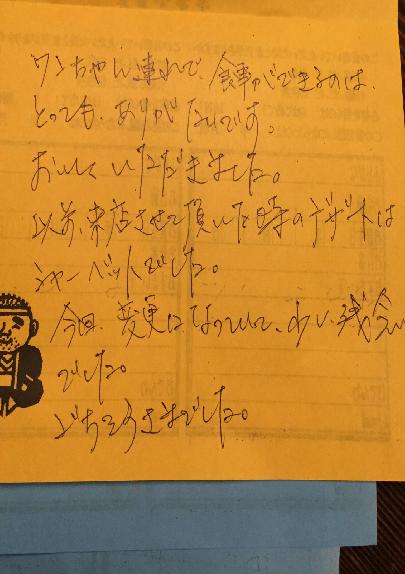 ワンちゃん連れで、食事ができるのは、
とっても、ありがたいです。
おいしくいただきました。
以前、来店させて頂いた時のデザートは
シャーベットでした。
今回、変更になっていて、少し残念
でした。
ごちそうさまでした。